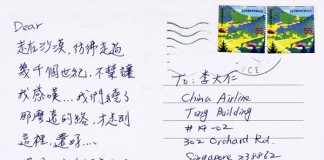 Dear
走在沙漠,彷彿走過
幾千個世紀,不禁讓
我感嘆...我們經了
那麼遠的路,才走到
這裡,還好....
To: 李大仁
China Airline
Tang Building
#14-02
302 Orchard Rd.
Singapore 238862